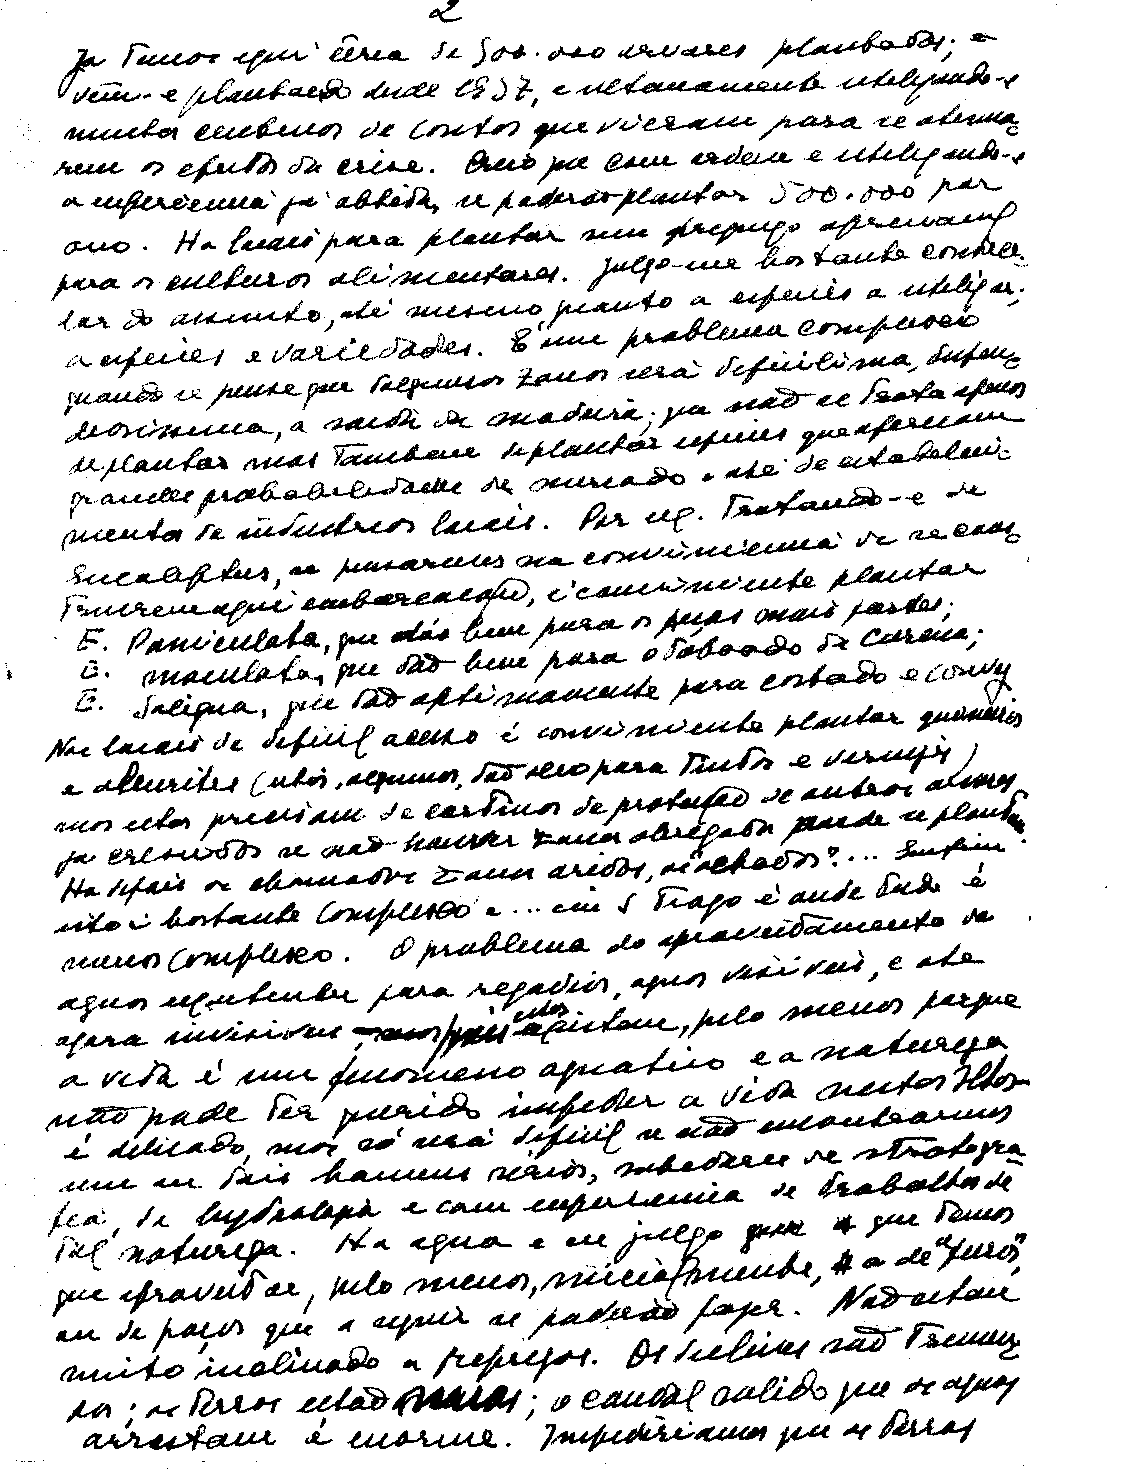 2
Já temos aqui cêrca de 500.000 arvores plantadas; e
vem-se plantando desde 1937, e ultimamente utilizando-se
muitos centenas de contos que vieram para se atenua-
rem os efeitos da crise. Creio que com ordem e utilizando-se
a experiencia já obtida, se poderão plantar 500.000 por
ano. Ha locais para plantar sem prejuizo
para as culturas alimentares. Julgo-me bastante conhece-
dor do assunto, até mesmo quanto a especies a utilizar,
a especies e variedades. É um problema complexo
quando se pense que de algumas zonas será dificilima, dispen-
diosissima, a saida da madeira; que não se trata apenas
de plantar mas tambem de plantar especies que ofereçam
grandes probabilidades de mercado e até de estabeleci-
mento de industrias locais. Por ex. Tratando-se de
Eucaliptus, se pensarmos na conveniencia de se cons-
truirem aqui embarcações, é conveniente plantar
E. Paniculata, que dão bem para as peças mais fortes;
E. maculata, que dão bem para o taboado de carena;
E. Saligna, que dão optimamente para costado e convez
Nos locais de dificil acesso é conveniente plantar
e aleurites (estas, algumas, dão oleo para tintas e vernizes)
mas estas precisam de cortinas de proteção de outras arvores
já crescidas se não houver zona abrigada onde se plantem.
Ha depois as chamadas zonas aridas, os "achados"?... Emfim
isto é bastante complexo e... em S. Tiago é onde tudo é
menos complexo. O problema do aproveitamento das
aguas existentes para regadios, aguas visiveis, e até
agora invisiveis, estas existem, pelo menos porque
a vida é um fenomeno aquatico e a natureza
não pode ter querido impedir a vida nestas Ilhas
é delicado, mas só será dificil se não encontrarmos
um ou dois homens sérios, sabedores de estratigra-
fia, de hydrologia e com experiencia de trabalhos de
tal natureza. Ha agua e eu julgo que temos
que aproveitar, pelo menos, inicialmente, a de "furos",
ou de poços que a seguir se poderão fazer. Não estou
muito inclinado a represas. Os declives são tremen-
dos; as terras estão nuas; o caudal solido que as aguas
arrastam é enorme. Impediriamos que as terras